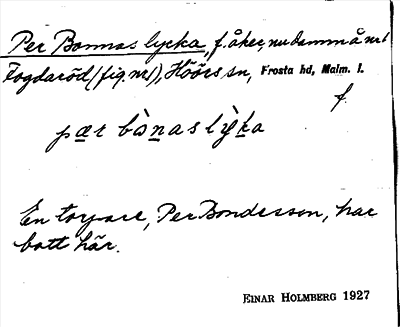 Per Bonnas lycka, f. åker, nu damm å nr 1
Fogdaröd (fig. nr 1), Höörs sn, Frosta hd, Malm. l.
f.
pær bònaslỳka
En torpare, Per Bondesson, har
bott här.
EINAR HOLMBERG 1927